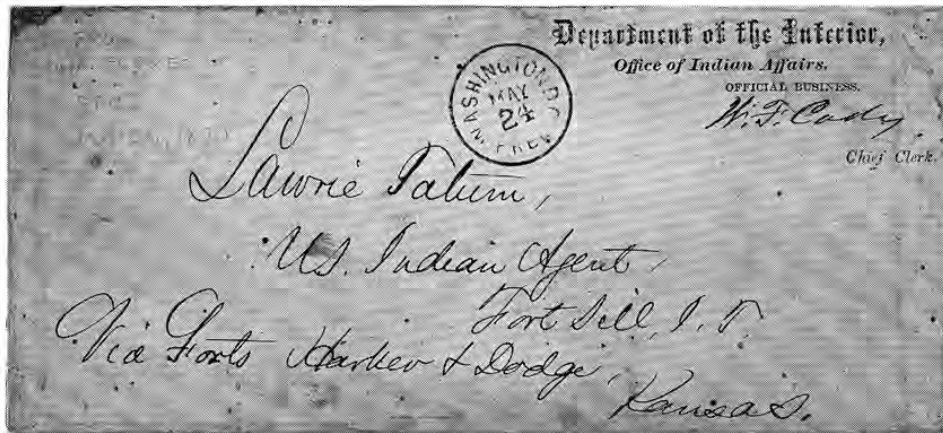 Department of the Interior,
Office of Indian Affairs.
OFFICIAL BUSINESS.
W. F. Cady
Chief Clerk.
WASHINGTON D.C.
MAY
24
FREE
Lawrie Tatum,
U.S. Indian Agent,
Fort Sill, I. T.
Via Forts Harker & Dodge,
Kansas.